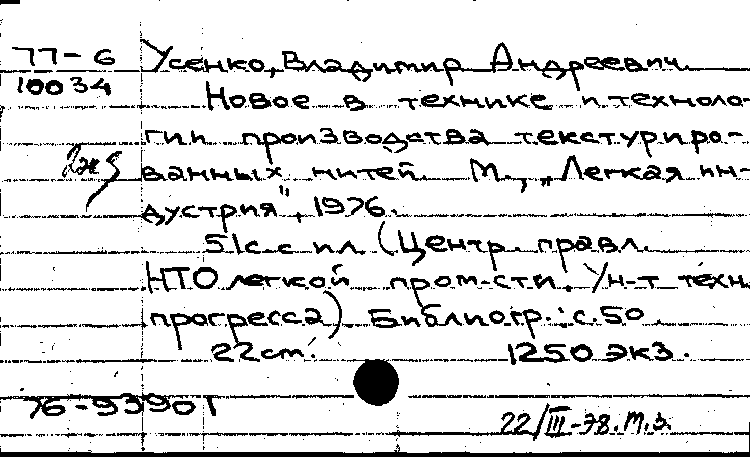 77-6 Усенко, Владимир Андреевич.
10034 Новое в технике и техноло-
гии производства текстуриро-
ванных нитей. М., „Легкая ин-
дустрия", 1976.
51с. с ил. (Центр. правл.
НТО легкой пром-сти. Ун-т техн.
прогресса) Библиогр.: с. 50.
22см. 1250 экз.
76-93901
22/III-78. м.з.